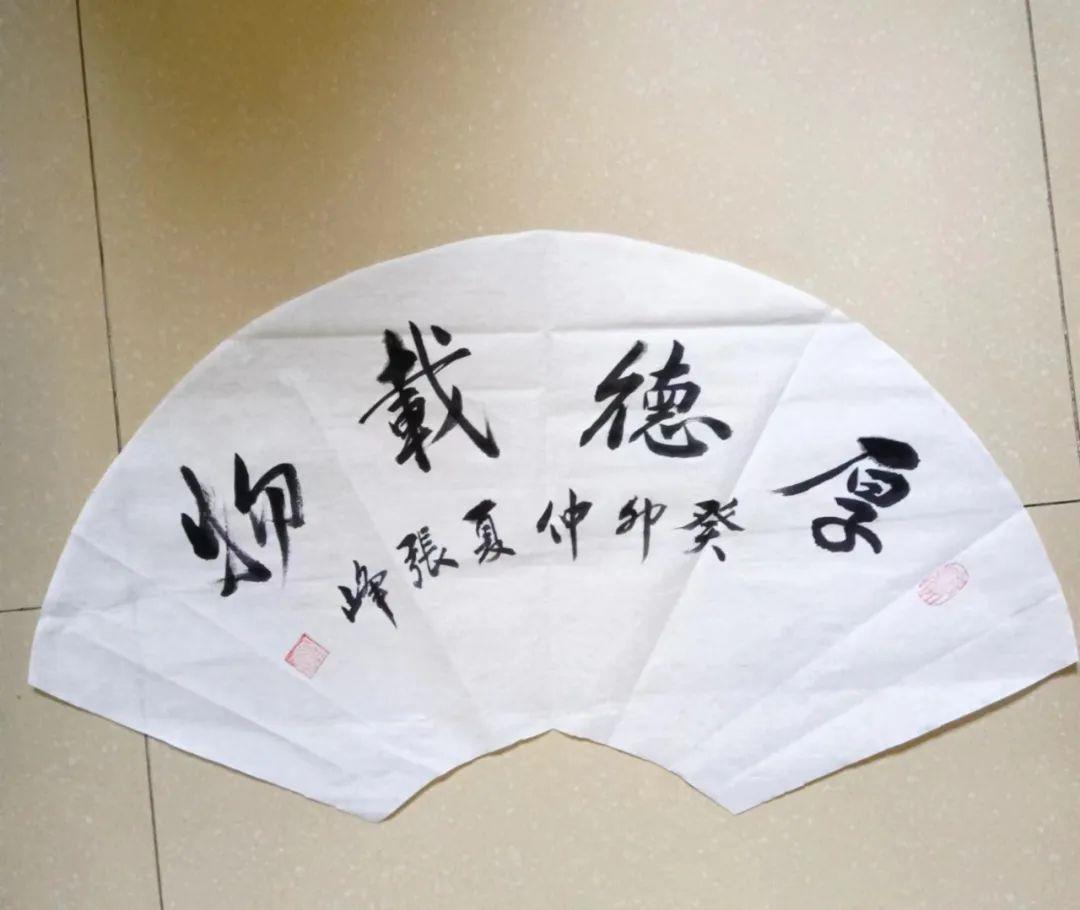 厚德載物
癸卯仲夏張峰